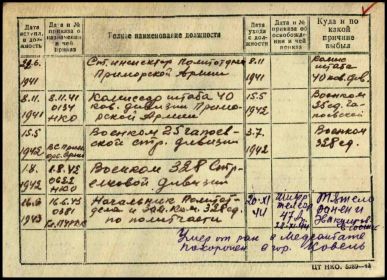 Дата вступл. в должность
Дата и № приказа о назначении и чей приказ
Полное наименование должности
Дата ухода с должности
Дата и № приказа об освобождении и чей приказ
Куда и по какой причине выбыл
22.6. 1941
Ст. инспектор Политотдела
Приморской Армии
8.11 1941
Комис. штаба
40 кав. див.
8.11. 1941
8.11.41
НКО
Комиссар штаба 40
кав. дивизии Примо-
рской Армии
15.5 1942
Военком
25 сд. Ча-
паевской
15.5 1942
Военком 25 Чапаев-
ской стр. дивизии
3.7. 1942
Военком
328 сд.
1.8. 1942
1.8.42
0622
НКО
Военком 328 Стр-
елковой дивизии
16.6 1943
16.6.43
0681
Начальник Политот-
дела и Зам. ком. 328 сд.
по политчасти
20.XI 44
47 А
Тяжело
ранен и
Эвакуиров.
Умер от ран в Медсанбате
похоронен в гор. Ковель
ЦТ НКО. 5289—44